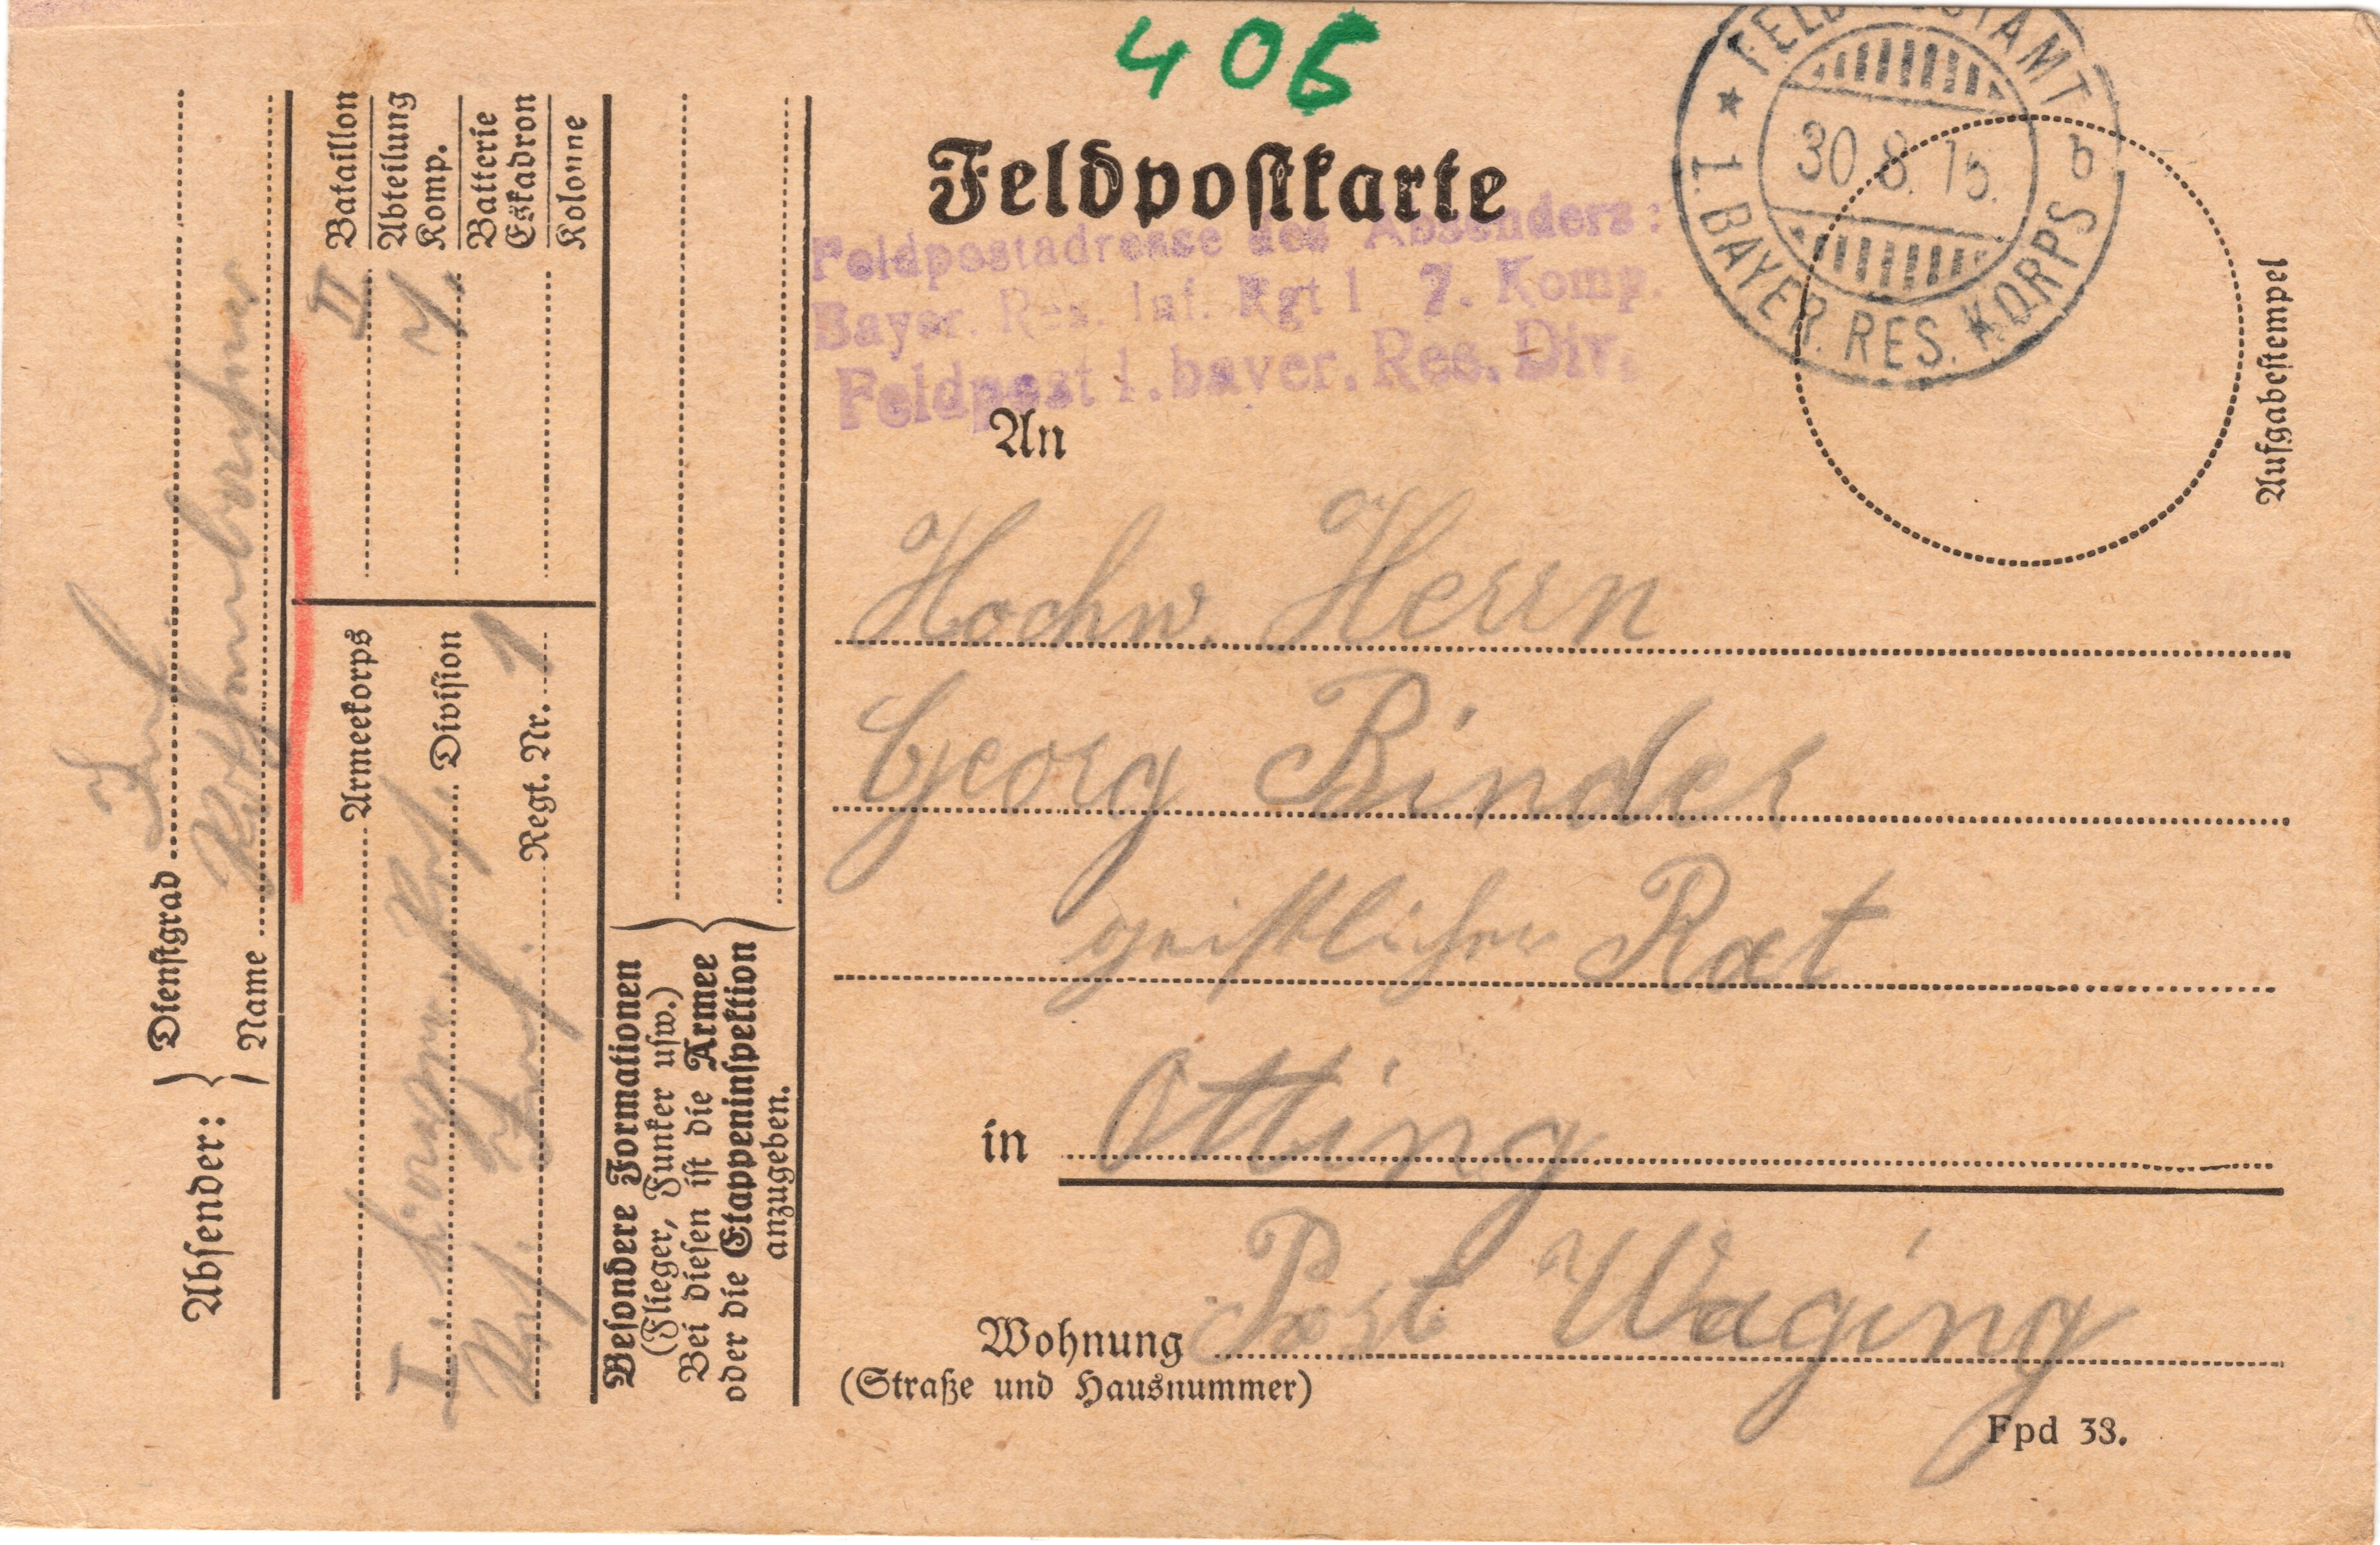 406
Feldpostkarte
FELDPOSTAMT
30 8. 15.
b
1. BAYER. RES. KORPS
Feldpostadresse des Absenders:
Bayer Res. Inf. Rgt 1 7. Komp.
Feldpost 1. bayer. Res. Div.
Aufgabestempel
An
Hochw. Herrn
Georg Binder
geistlicher Rat
in Otting
Wohnung Post Waging
(Straße und Hausnummer)
Fpd 33.
Absender:
Dienstgrad Inf.
Name
II Bataillon
Abteilung
Komp.
Batterie
Eskadron
Kolonne
Armeekorps
I. bayer. Res. Division
Res. Inf. Regt. Nr. 1
Besondere Formationen
(Flieger, Funker usw.)
Bei diesen ist die Armee
oder die Etappeninspektion
anzugeben.